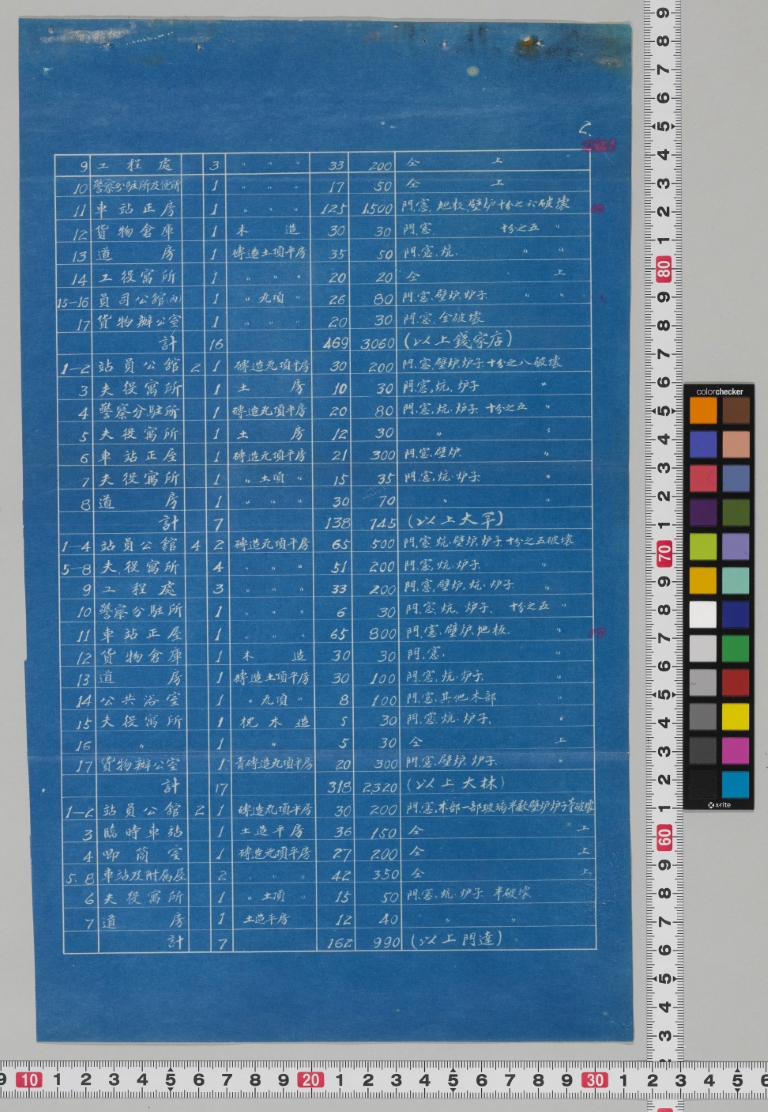 2.
9 工程處 3 〃 〃 〃 33 200 仝 上
10 警察分駐所及便所 1 〃 〃 〃 17 50 仝 上
11 車站正房 1 〃 〃 〃 125 1500 門.窓.地板.壁炉十分之六破壊
12 貨物倉庫 1 木 造 30 30 門.窓 十分之五 〃
13 道房 1 磚造土頂平房 35 50 門.窓.炕. 〃 〃
14 工役寓所 1 〃 〃 〃 20 20 仝 上
15-16 員司公館 1 〃 瓦頂 〃 26 80 門.窓.壁炉.炉子 〃 〃
17 貨物辦公室 1 〃 〃 〃 20 30 門.窓.全破壊
計 16 469 3060 (以上錢家店)
1-2 站員公舘 2 1 磚造瓦項平房 30 200 門.窓.壁炉.炉子十分之八破壊
3 夫役寓所 1 土 房 10 30 門.窓.炕.炉子 〃
4 警察分駐所 1 磚造瓦項平房 20 80 門.窓.炕.炉子 十分之五 〃
5 夫役寓所 1 土 房 12 30 〃 〃
6 車站正屋 1 磚造瓦項平房 21 300 門.窓.壁炉 〃
7 夫役寓所 1 〃 土項 〃 15 35 門.窓.炕.炉子 〃
8 道房 1 〃 〃 〃 30 70 〃 〃
計 7 138 745 (以上大罕)
1-4 站員公舘 4 2 磚造瓦項平房 65 500 門.窓.炕.壁炉.炉子十分之五破壊
5-8 夫役寓所 4 〃 〃 〃 51 200 門.窓.炕.炉子 〃
9 工程處 3 〃 〃 〃 33 200 門.窓.壁炉.炕.炉子 〃
10 警察分駐所 1 〃 〃 〃 6 30 門.窓.炕.炉子. 十分之五 〃
11 車站正屋 1 〃 〃 〃 65 800 門.窓.壁炉.地板. 〃
12 貨物倉庫 1 木 造 30 30 門.窓. 〃
13 道房 1 磚造土項平房 30 100 門.窓.炕.炉子. 〃
14 公共浴室 1 〃 瓦項 〃 8 100 門.窓.其他木部 〃
15 夫役寓所 1 枕木造 5 30 門.窓.炕.炉子. 〃
16 〃 1 〃 5 30 仝 上
17 貨物辦公室 1 青磚造瓦項平房 20 300 門.窓.壁炉.炉子. 〃
計 17 318 2,320 (以上大林)
1-2 站員公舘 2 1 磚造瓦項平房 30 200 門.窓.木部一部玻璃半数壁炉炉子破壊
3 臨時車站 1 土造平房 36 150 仝 上
4 喞筒室 1 磚造瓦項平房 27 200 仝 上
5.8 車站及附屬屋 2 〃 〃 〃 42 350 仝 上
6 夫役寓所 1 〃 土項 〃 15 50 門.窓.炕.炉子 半破壊
7 道房 1 土造平房 12 40 〃 〃
計 7 162 990 (以上門達)